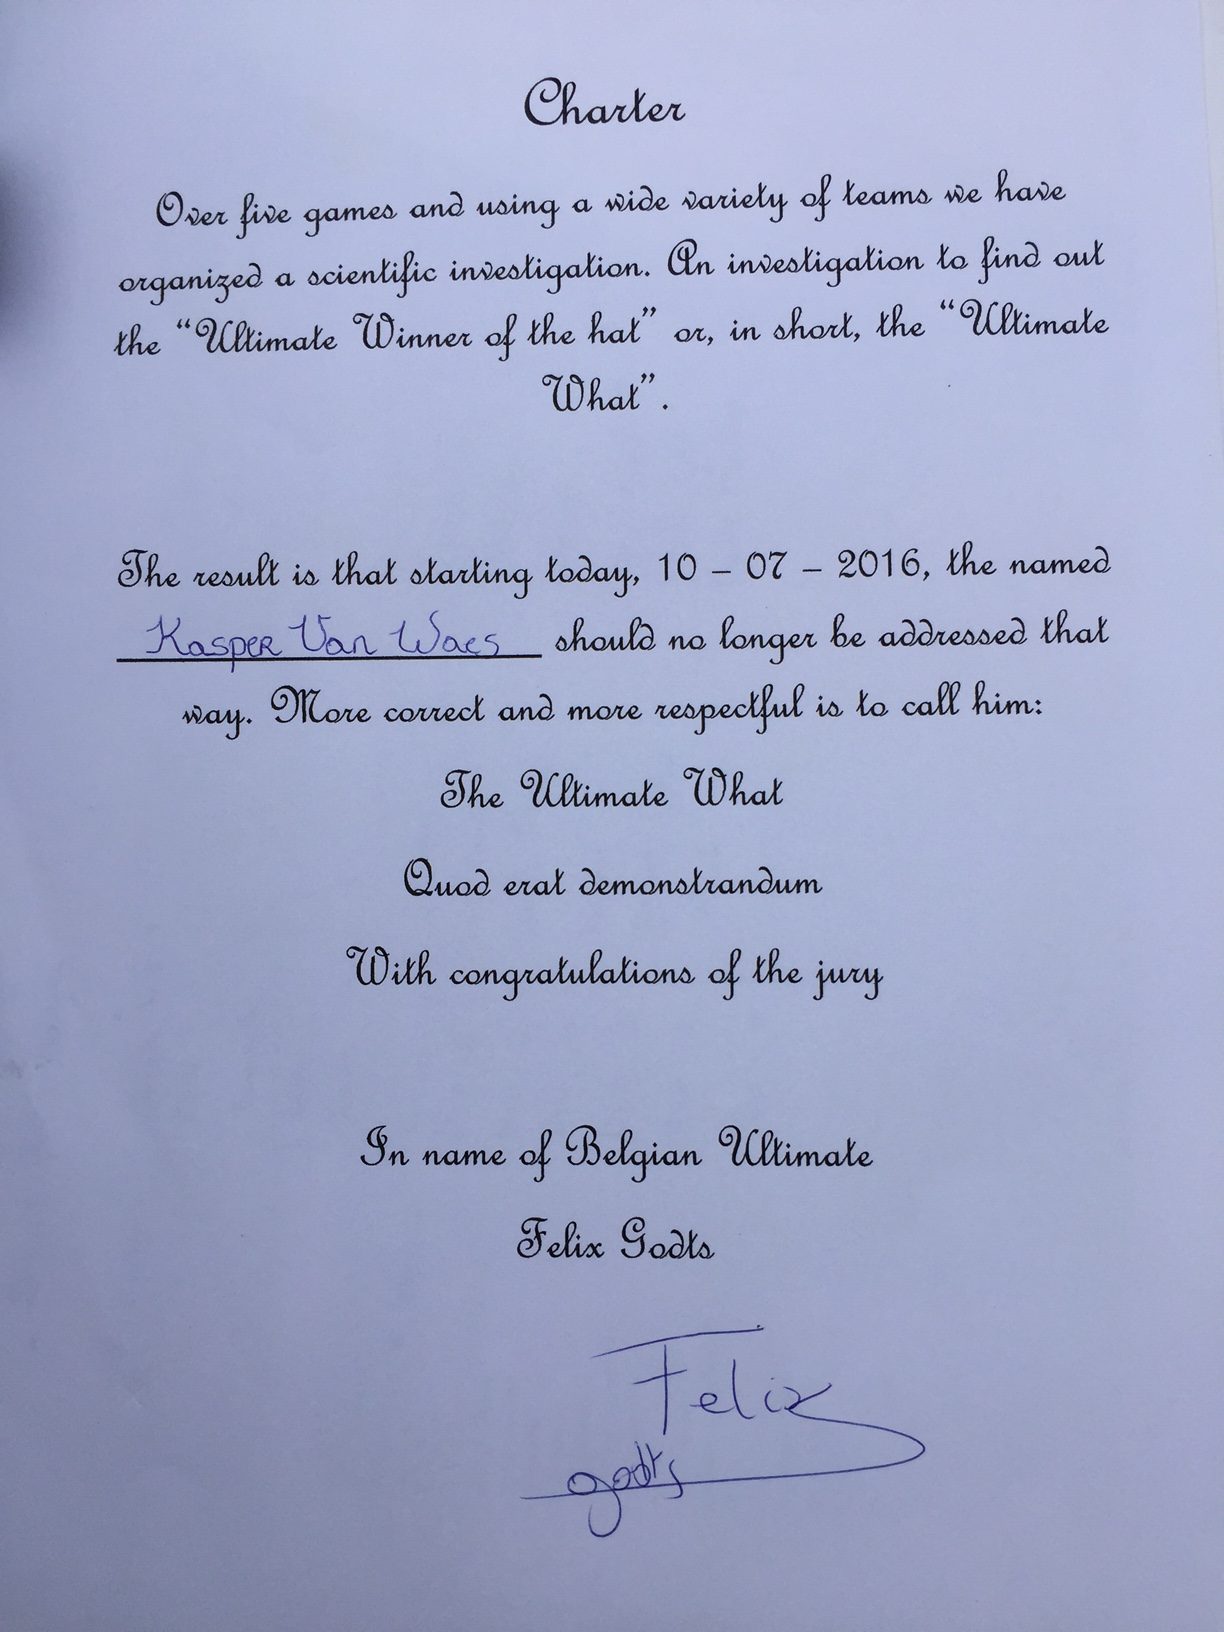 Charter
Over five games and using a wide variety of teams we have
organized a scientific investigation. An investigation to find out
the “Ultimate Winner of the hat” or, in short, the “Ultimate
What”.
The result is that starting today, 10 – 07 – 2016, the named
Kasper Van Waes should no longer be addressed that
way. More correct and more respectful is to call him:
The Ultimate What
Quod erat demonstrandum
With congratulations of the jury
In name of Belgian Ultimate
Felix Godts
Felix
godts